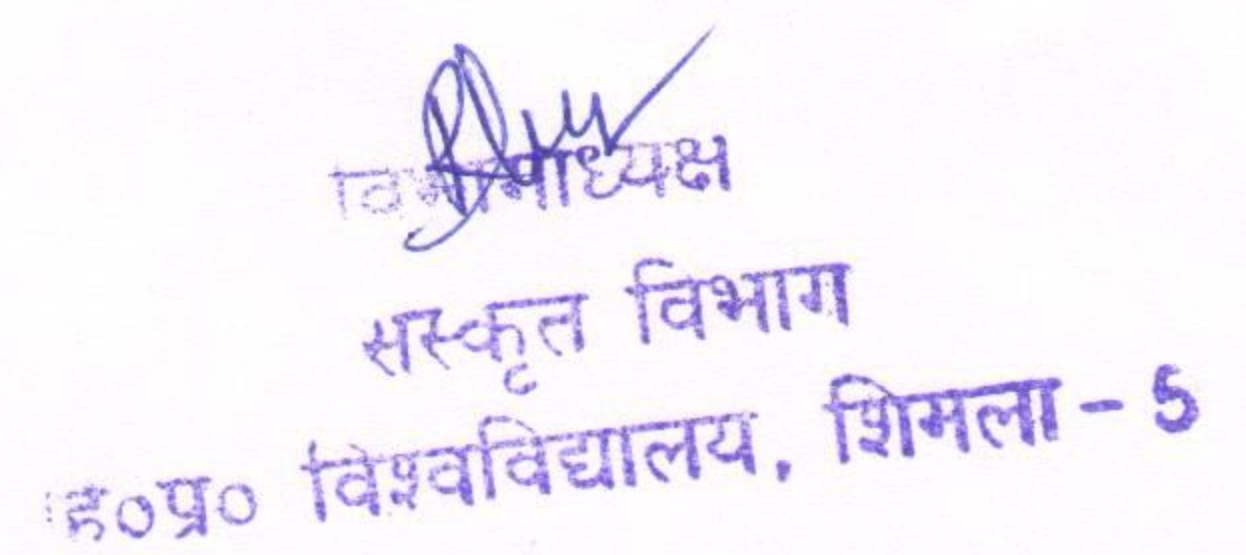 विभागाध्यक्ष
सस्कृत विभाग
हि०प्र० विश्वविद्यालय, शिमला - 5